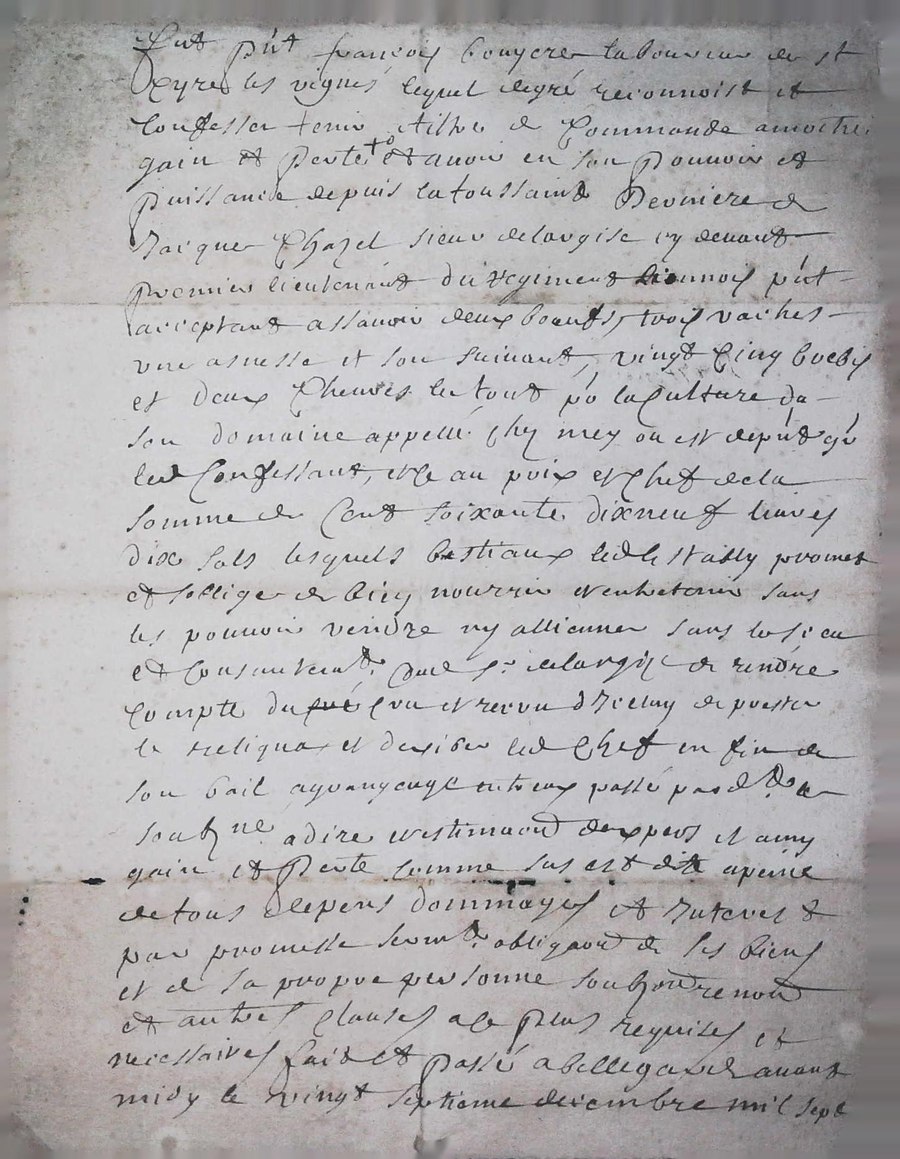 Fut pnt françois bouyere laboureur de st
Cyre les vignes lequel degré reconnoist et
Confesse tenir atiltre de Commande amoitié
gain et perte et avoir en son Pouvoir et
puissance depuis la toussaint Derniere de
Jacques Chazel sieur delargise cy devant
premier lieutenant du regiment lionnois pnt
acceptant assavoir deux boeufs, trois vaches
une asnesse et son suivant, vingt Cinq brebis
et deux Chevres le tout po la Culture du
son domaine appellé chy mey ou est
led Confessant, et ce au prix et Chef de la
somme de Cent soixante dixneuf livres
dix sols lesquels bestiaux led promet
et sollige de bien nourrir et entretenir sans
les pouvoir vendre ny alliener sans le sceu
et Consentemt dud sr delargise de rendre
Compte du Cru et recru dIceluy de prester
le reliqua et de led Chef en fin de
son bail agrangeage entreux passé pard le
soubzne adire et estimaon dexpers et amy
gain et perte comme sus est dit apeine
de tous depens dommages et Interest
par promesse sermt obligaon de ses biens
et de sa propre personne renon
et autres Clauses a ce plus requises et
necessaires fait et passé abellegarde avant
midy le vingt septieme decembre mil sept